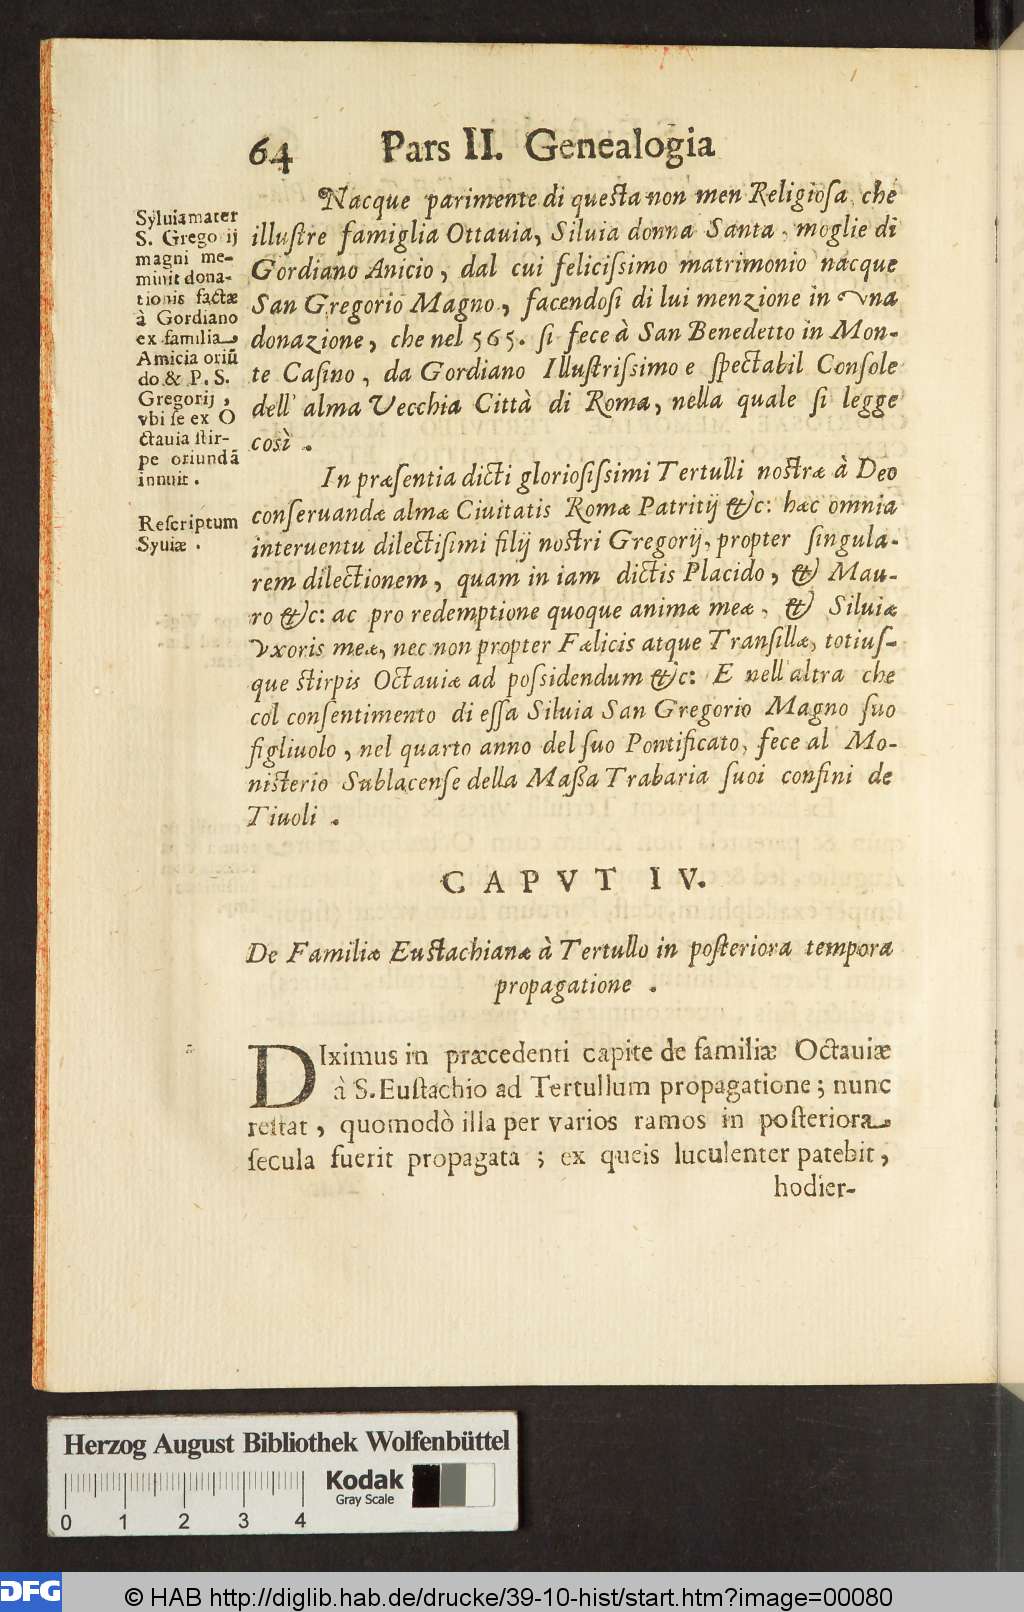 64 Pars II. Genealogia
Nacque parimente di questa non men Religiosa, che
illustre famiglia Ottauia, Siluia donna Santa, moglie di
Gordiano Anicio, dal cui felicissimo matrimonio nacque
San Gregorio Magno, facendosi di lui menzione in vna
donazione, che nel 565. si fece à San Benedetto in Mon-
te Casino, da Gordiano Illustrissimo e spectabil Console
dell' alma Vecchia Città di Roma, nella quale si legge
così.
Syluia mater
S. Gregorij
magni me-
minit dona-
tionis factæ
à Gordiano
ex familia
Amicia oriũ
do & P. S.
Gregorij,
vbi se ex O
ctauia stir-
pe oriundã
innuit.
In præsentia dicti gloriosissimi Tertulli nostræ à Deo
conseruandæ almæ Ciuitatis Romæ Patritij &c: hæc omnia
interuentu dilectisimi filij nostri Gregorij, propter singula-
rem dilectionem, quam in iam dictis Placido, & Mau-
ro &c: ac pro redemptione quoque animæ meæ, & Siluiæ
vxoris meæ, nec non propter Fælicis atque Transillæ, totius-
que stirpis Octauiæ ad possidendum &c: E nell'altra che
col consentimento di essa Siluia San Gregorio Magno suo
figliuolo, nel quarto anno del suo Pontificato, fece al Mo-
nisterio Sublacense della Massa Trabaria suoi confini de
Tiuoli.
Rescriptum
Syuiæ.
CAPVT IV.
De Familiæ Eustachianæ à Tertullo in posteriora tempora
propagatione.
DIximus in præcedenti capite de familiæ Octauiæ
à S. Eustachio ad Tertullum propagatione; nunc
restat, quomodò illa per varios ramos in posteriora
secula fuerit propagata; ex queis luculenter patebit,
hodier-
Herzog August Bibliothek Wolfenbüttel
Kodak
Gray Scale
0 1 2 3 4
DFG
© HAB http://diglib.hab.de/drucke/39-10-hist/start.htm?image=00080